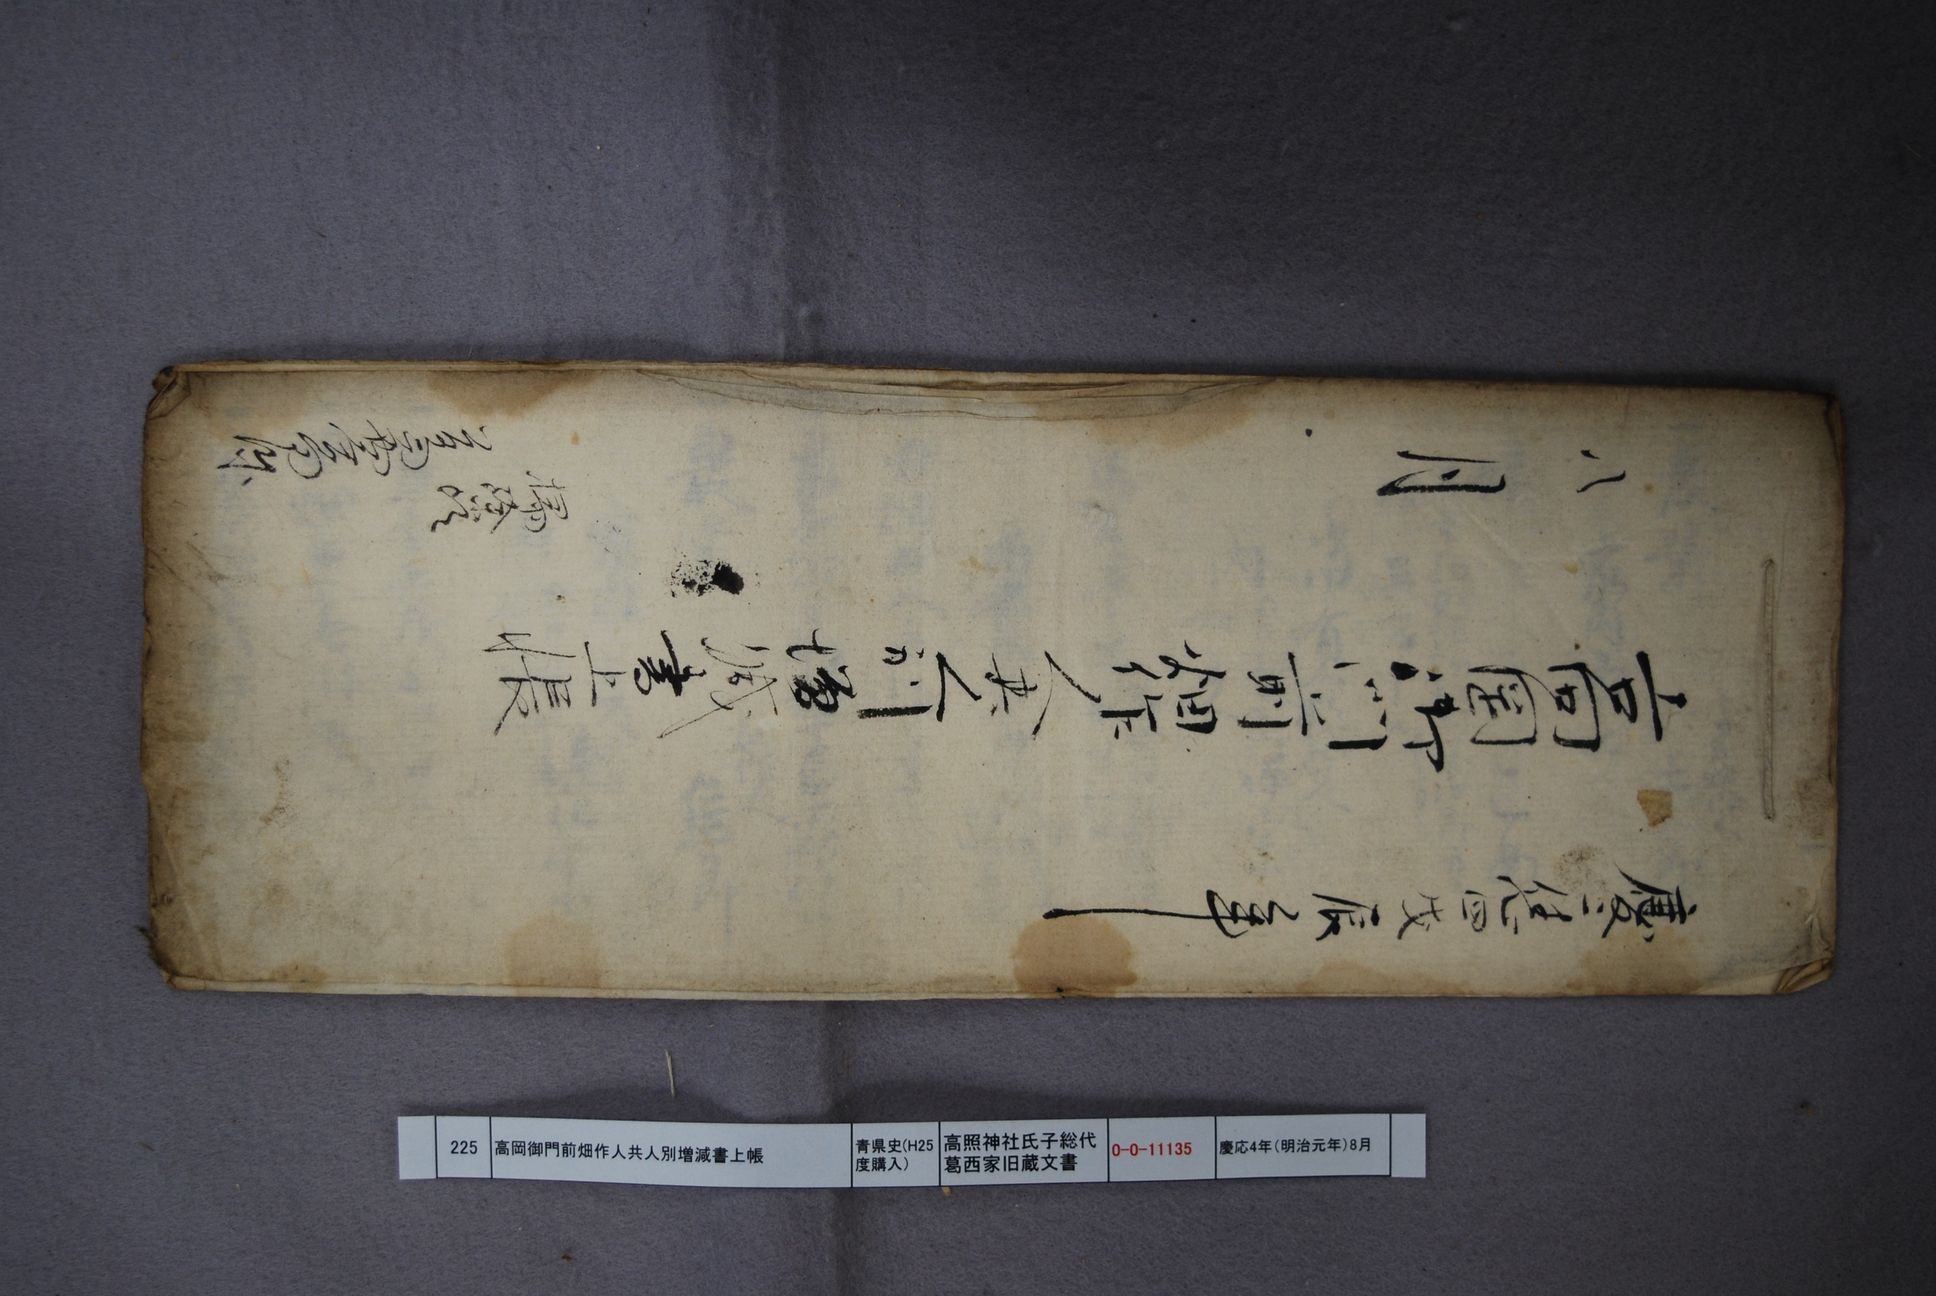 慶應四戊辰年
高岡御門前畑作人共人別増減書上帳
八月
225
高岡御門前畑作人共人別増減書上帳
青県史(H25
度購入)
高照神社氏子総代
葛西家旧蔵文書
0-0-11135
慶応4年(明治元年)8月